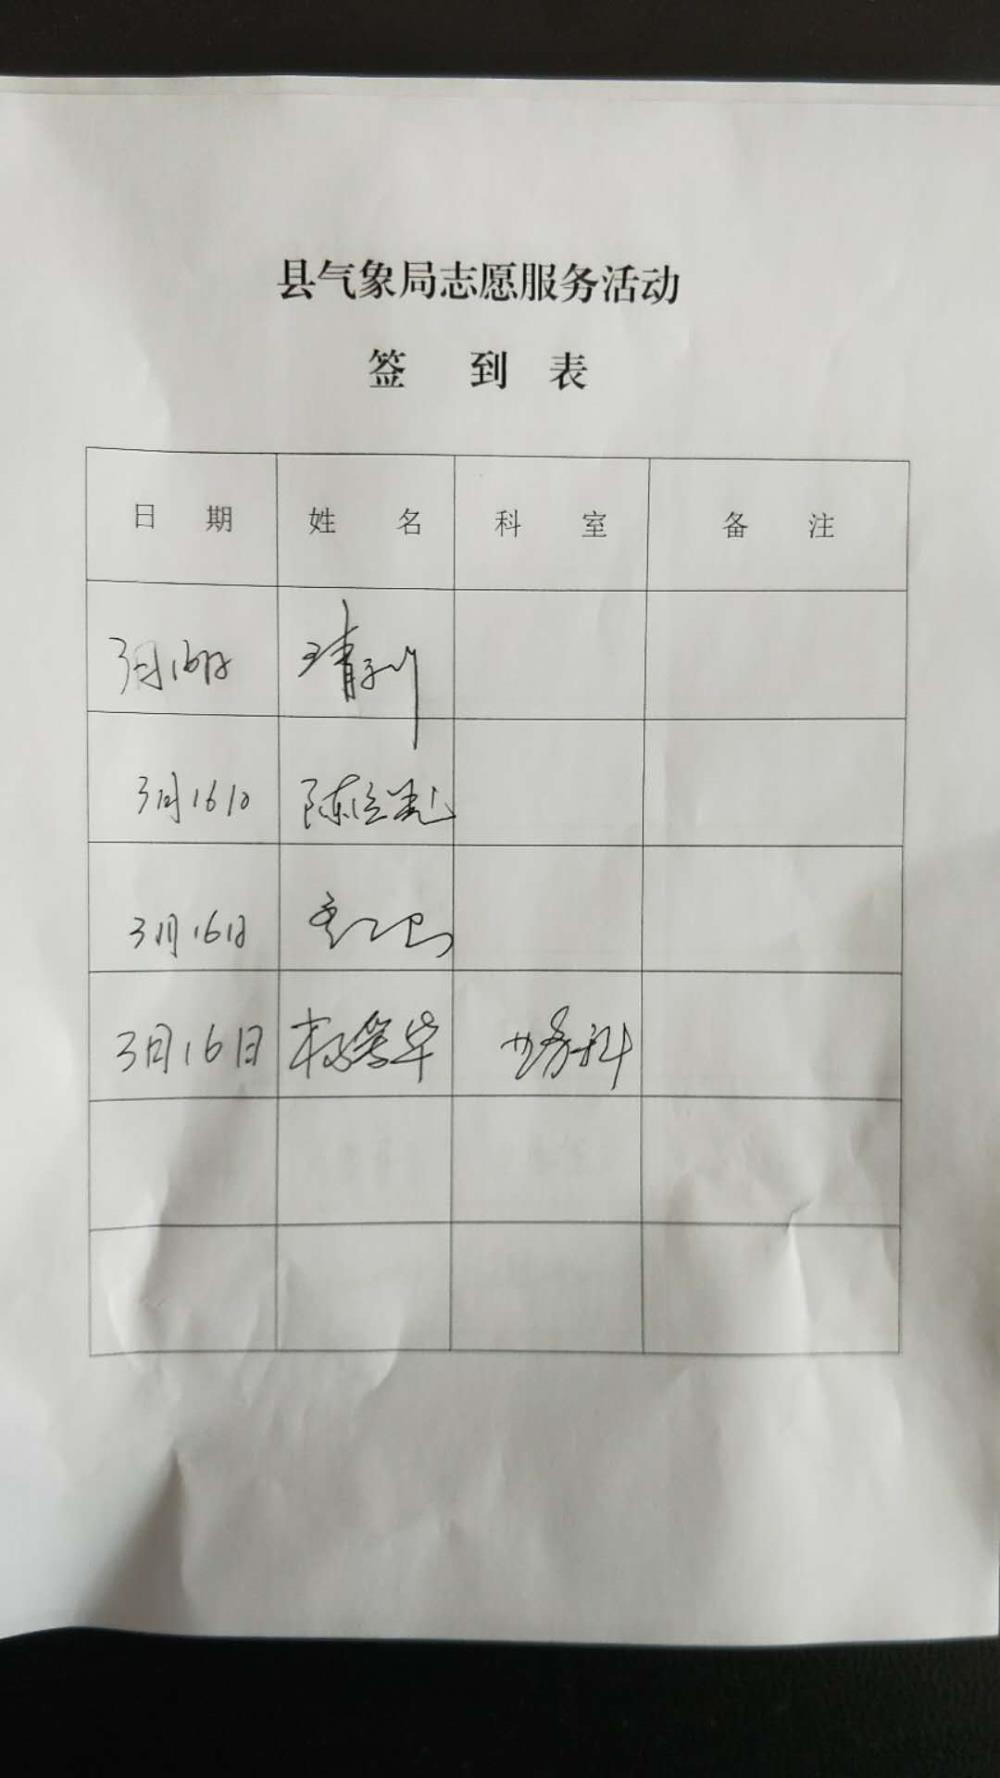 县气象局志愿服务活动
签 到 表
日 期 姓 名 科 室 备 注
3月16日
3月16日 陈
3月16日
3月16日 杨 华 业务科